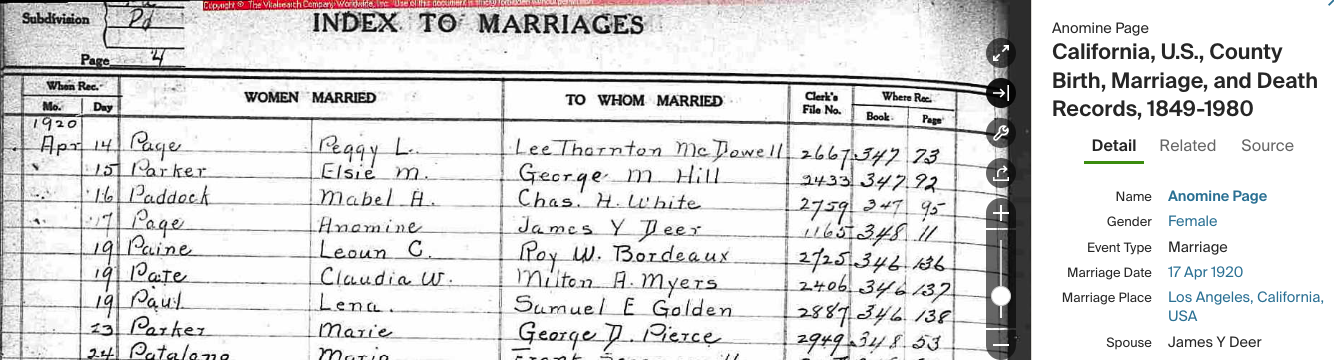 Copyright © The Vitalsearch Company Worldwide, Inc. Use of this document is strictly forbidden without permission.
Subdivision Pd
INDEX TO MARRIAGES
Page 4
When Rec. WOMEN MARRIED TO WHOM MARRIED Clerk's File No. Where Rec.
Mo. Day Book Page
1920
Apr 14 Page Peggy L. Lee Thornton McDowell 2667 347 73
15 Parker Elsie M. George M Hill 2433 347 92
16 Paddock Mabel H. Chas. H. White 2759 347 95
17 Page Anomine James Y Deer 1165 348 11
19 Paine Leoun C. Roy W. Bordeaux 2725 346 136
19 Pate Claudia W. Milton A. Myers 2406 346 137
19 Paul Lena. Samuel E Golden 2887 346 138
23 Parker Marie George D. Pierce 2949 348 53
24 Maria Frank
Anomine Page
California, U.S., County
Birth, Marriage, and Death
Records, 1849-1980
Detail Related Source
Name Anomine Page
Gender Female
Event Type Marriage
Marriage Date 17 Apr 1920
Marriage Place Los Angeles, California,
USA
Spouse James Y Deer